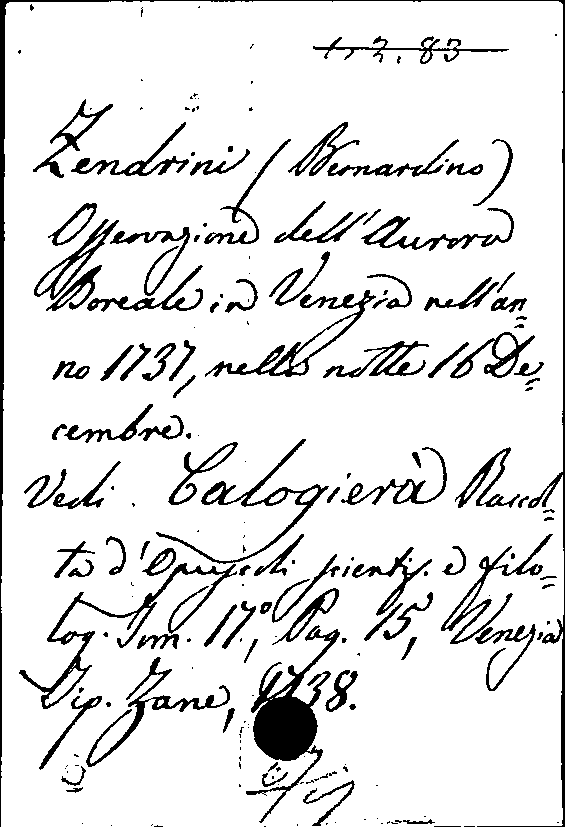 Zendrini (Bernardino)
Osservazione dell'Aurora
Boreale in Venezia nell'an=
no 1737, nella notte 16 De=
cembre.
Vedi Calogierà Raccol=
ta d'Opuscoli scientif. e filo=
log. Tom. 17°, Pag. 15, Venezia
Tip. Zane, 1738.